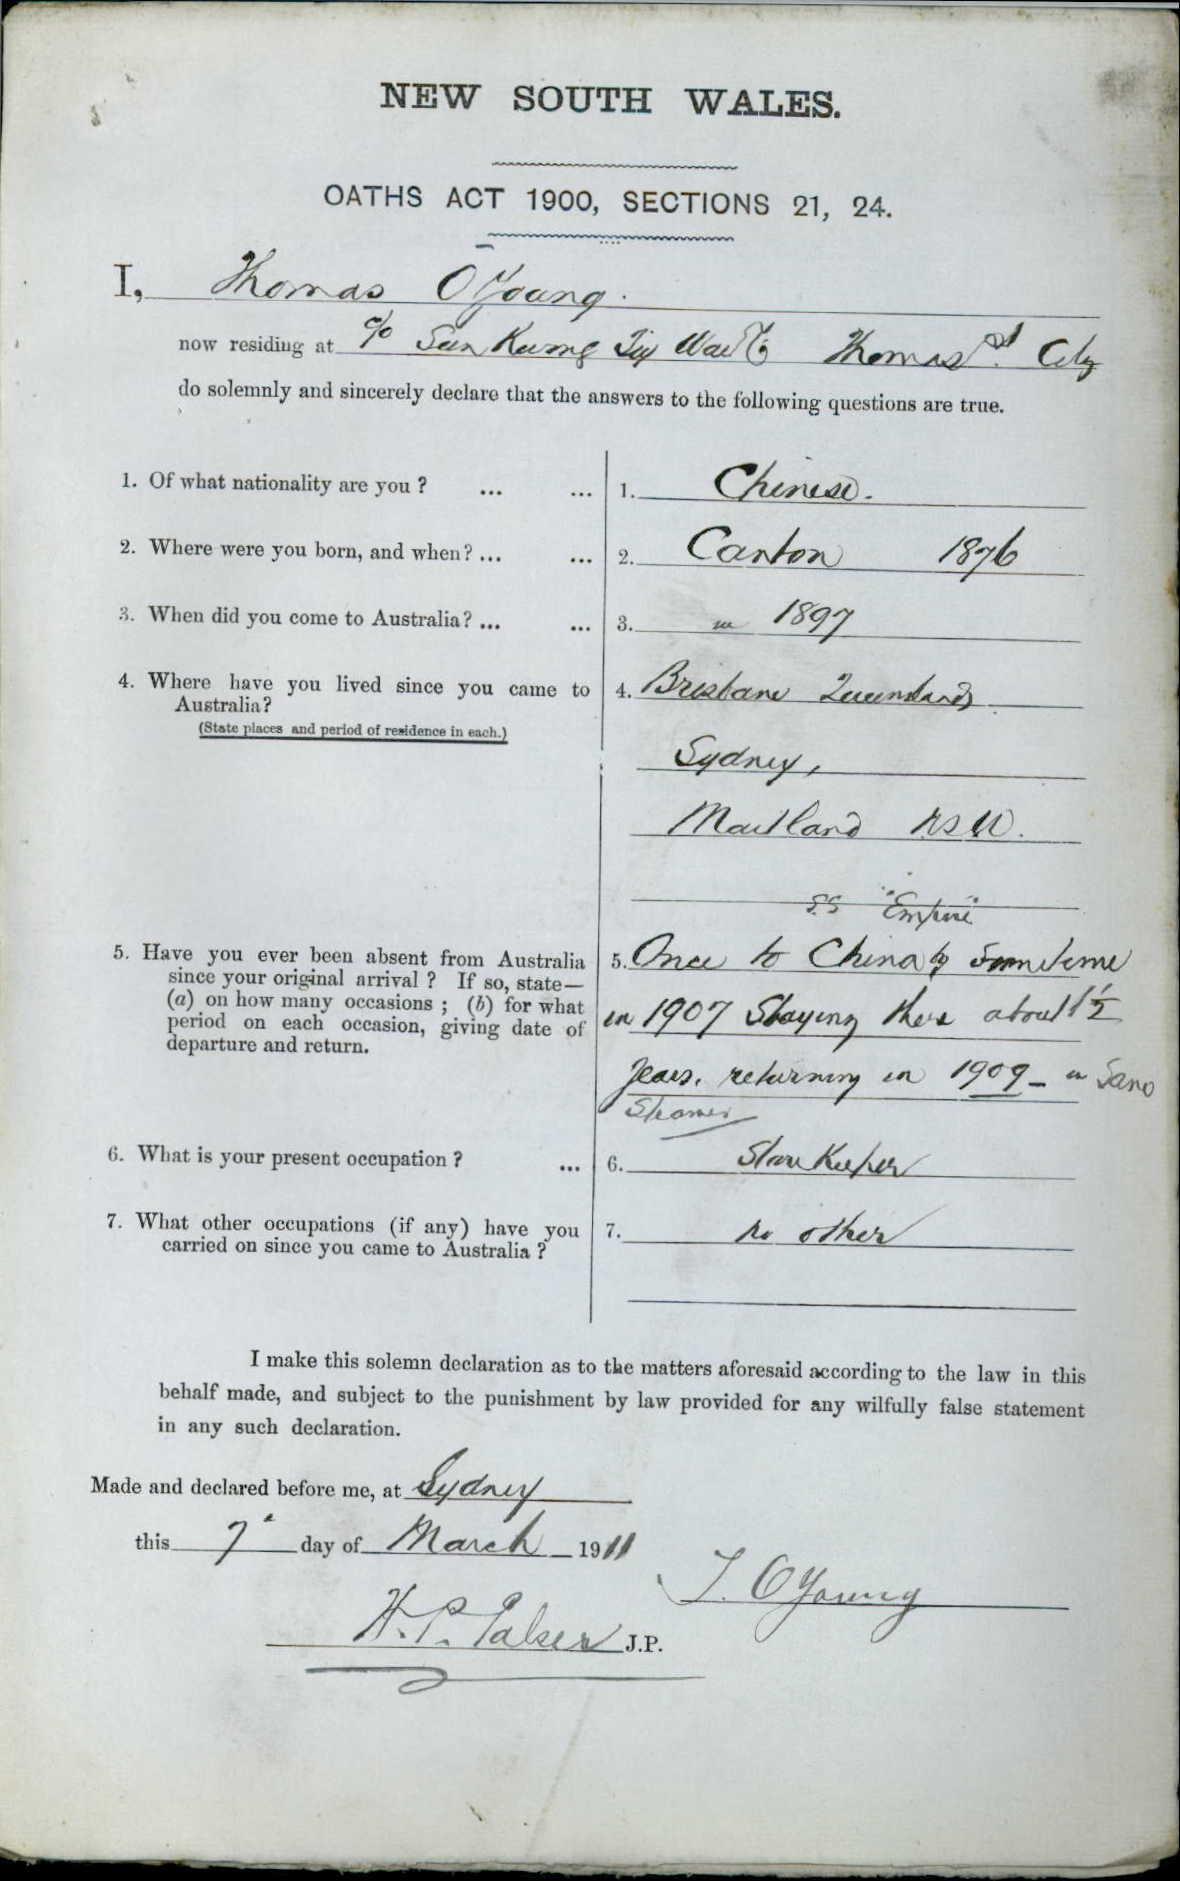 NEW SOUTH WALES.
OATHS ACT 1900, SECTIONS 21, 24.
I, Thomas O'Young.
now residing at c/o Sun Kwong Tiy Wai & Co Thomas St. City
do solemnly and sincerely declare that the answers to the following questions are true.
1. Of what nationality are you? ... ... 1. Chinese.
2. Where were you born, and when? ... ... 2. Canton 1876
3. When did you come to Australia? ... ... 3. in 1897
4. Where have you lived since you came to Australia? 4. Brisbane Queensland
(State places and period of residence in each.)
Sydney,
Maitland NSW.
SS "Empire"
5. Have you ever been absent from Australia 5. Once to China by Sometime
since your original arrival? If so, state—
(a) on how many occasions; (b) for what in 1907 Staying there about 1½
period on each occasion, giving date of
departure and return.
years. returning in 1909 – in Same
Steamer
6. What is your present occupation? ... 6. Store Keeper
7. What other occupations (if any) have you 7. no other
carried on since you came to Australia?
I make this solemn declaration as to the matters aforesaid according to the law in this
behalf made, and subject to the punishment by law provided for any wilfully false statement
in any such declaration.
Made and declared before me, at Sydney
this 7th day of March 1911
T. O'Young
H. P. J.P.